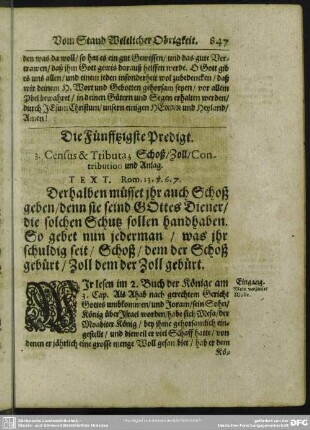 Vom Stand Weltlicher Obrigkeit. 847
den was da woll/ so hat es ein gut Gewissen/ und das gute Ver-
trawen/ daß ihm Gott gewis darauß helffen werde. O Gott gib
es uns allen/ und einem jeden insonderheit wol zubedencken/ daß
wir deinem H. Wort und Gebotten gehorsam seyen/ vor allem
Ubel bewahret/ in deinen Gütern und Segen erhalten werden/
durch JEsum Christum/ unsern einigen HERRN und Heyland/
Amen!
Die Fünfftzigste Predigt.
3. Census & Tributa; Schoß/ Zoll/ Con-
tribution und Anlag.
TEXT. Rom. 13. v. 6. 7.
Derhalben müsset jhr auch Schoß
geben/ denn sie seind GOttes Diener/
die solchen Schutz sollen handhaben.
So gebet nun jederman/ was jhr
schuldig seit/ Schoß/ dem der Schoß
gebürt/ Zoll dem der Zoll gebürt.
WJr lesen im 2. Buch der Könige am
3. Cap. Als Ahab nach gerechtem Gericht
Gottes umbkommen/ und Joram/ sein Sohn/
König über Jsrael worden/ habe sich Mesa/ der
Moabiter König/ bey ihme gehorsamlich ein-
gestellt/ und dieweil er viel Schaff hatte/ von
denen er jährlich eine grosse menge Woll gefan
hier/ hab er dem
Kö-
Eingang.
Wolle.